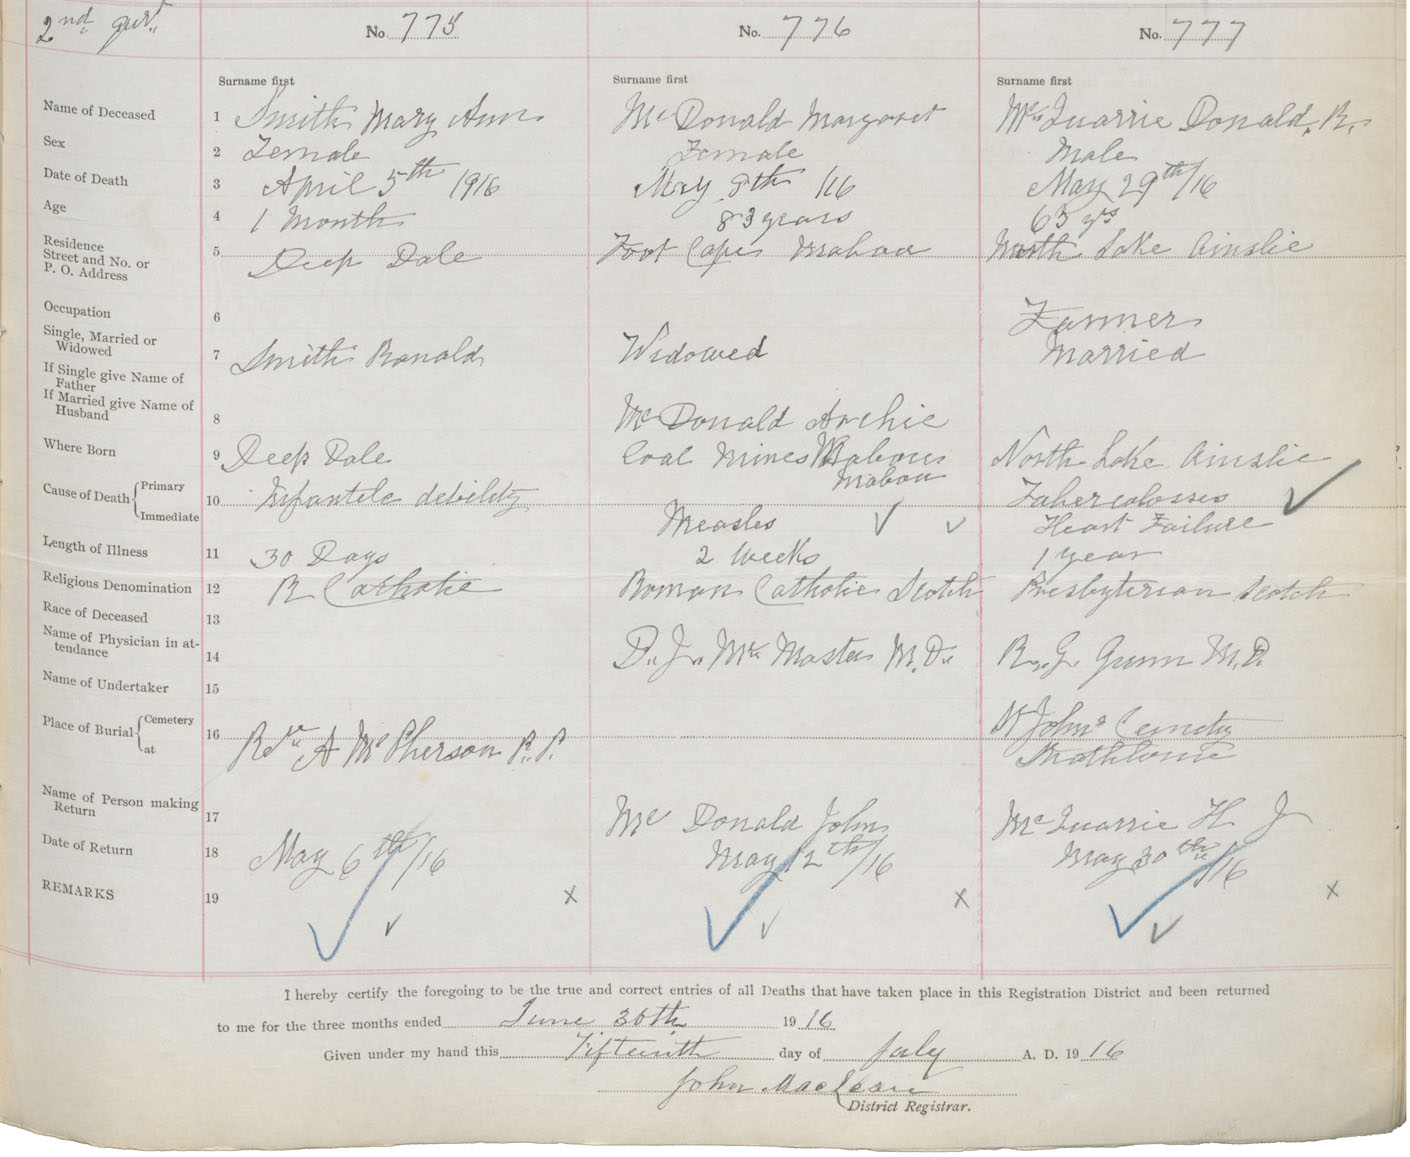 2nd qur.
No. 775
No. 776
No. 777
Surname first
Surname first
Surname first
Name of Deceased 1 Smith Mary Ann
Mc Donald Margaret
Mc Quarrie Donald. R.
Sex 2 Female
Female
Male
Date of Death 3 April 5th 1916
May 9th /16
May 29th/16
Age 4 1 Month
83 years
65 yrs
Residence
Street and No. or
P. O. Address
5 Deep Dale
Foot Cape Mabou
North Lake Ainslie
Occupation 6
Farmer
Single, Married or
Widowed
7 Smith Ronald
Widowed
Married
If Single give Name of
Father
If Married give Name of
Husband
8
Mc Donald Archie
Where Born 9 Deep Dale
Coal Mines Mabou
Mabou
North Lake Ainslie
Cause of Death { Primary
Immediate
10 Infantele debility
Measles
Tubercolosses
Heart Failure
Length of Illness 11 30 Days
2 Weeks
1 year
Religious Denomination 12 R Catholic
Roman Catholic Scotch
Presbyterian Scotch
Race of Deceased 13
Name of Physician in at-
tendance
14
D. J. Mc Master M. D.
R. G. Gunn M. D.
Name of Undertaker 15
Place of Burial { Cemetery
at
16 Revd A McPherson P. P.
St John's Cemetry
Strathlorne
Name of Person making
Return
17
Mc Donald John
Mc Quarrie H J
Date of Return 18 May 6th/16
May 12th/16
May 30th/16
REMARKS 19 x
x
x
I hereby certify the foregoing to be the true and correct entries of all Deaths that have taken place in this Registration District and been returned
to me for the three months ended June 30th 1916
Given under my hand this Fifteenth day of July A. D. 1916
John MacLean
District Registrar.